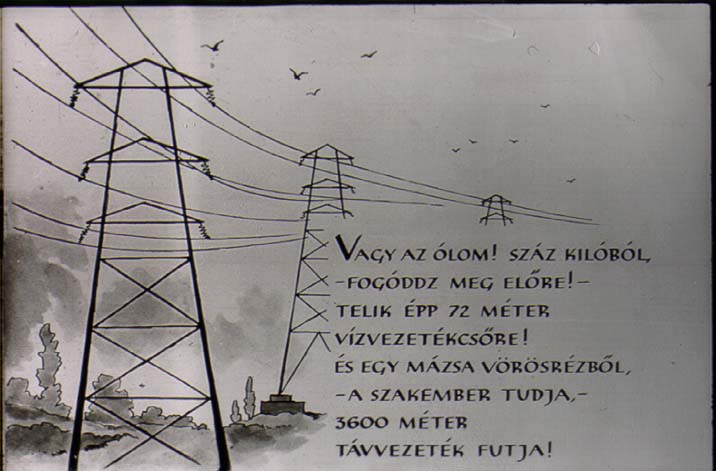 VAGY AZ ÓLOM! SZÁZ KILÓBÓL,
-FOGÓDDZ MEG ELŐRE!-
TELIK ÉPP 72 MÉTER
VÍZVEZETÉKCSŐRE!
ÉS EGY MÁZSA VÖRÖSRÉZBŐL,
-A SZAKEMBER TUDJA,-
3600 MÉTER
TÁVVEZETÉK FUTJA!